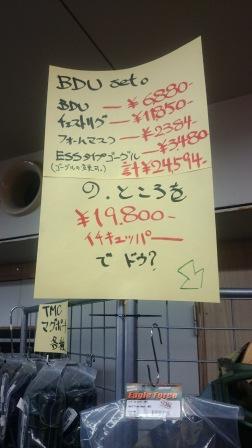 BDU set。
BDU ー ¥6880-
チェストリグ ー ¥11,850-
フォームマスク ー ¥2384-
ESSタイプゴーグル ー ¥3,480
計¥24,594-
の.ところを
¥19.800-
イチキュッパー
で ドウ?
TMC
マグポーチ
各種
Eagle Force